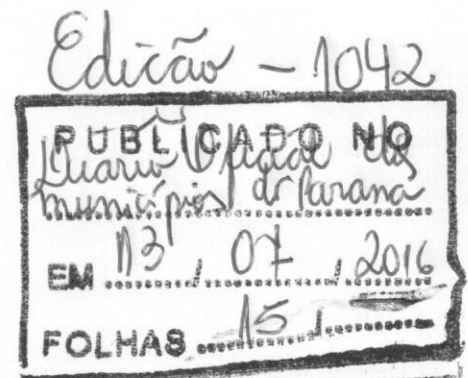 Edição - 1042
PUBLICADO NO
Diário Oficial dos
municípios do Paraná
EM 13 / 07 / 2016
FOLHAS 15 /